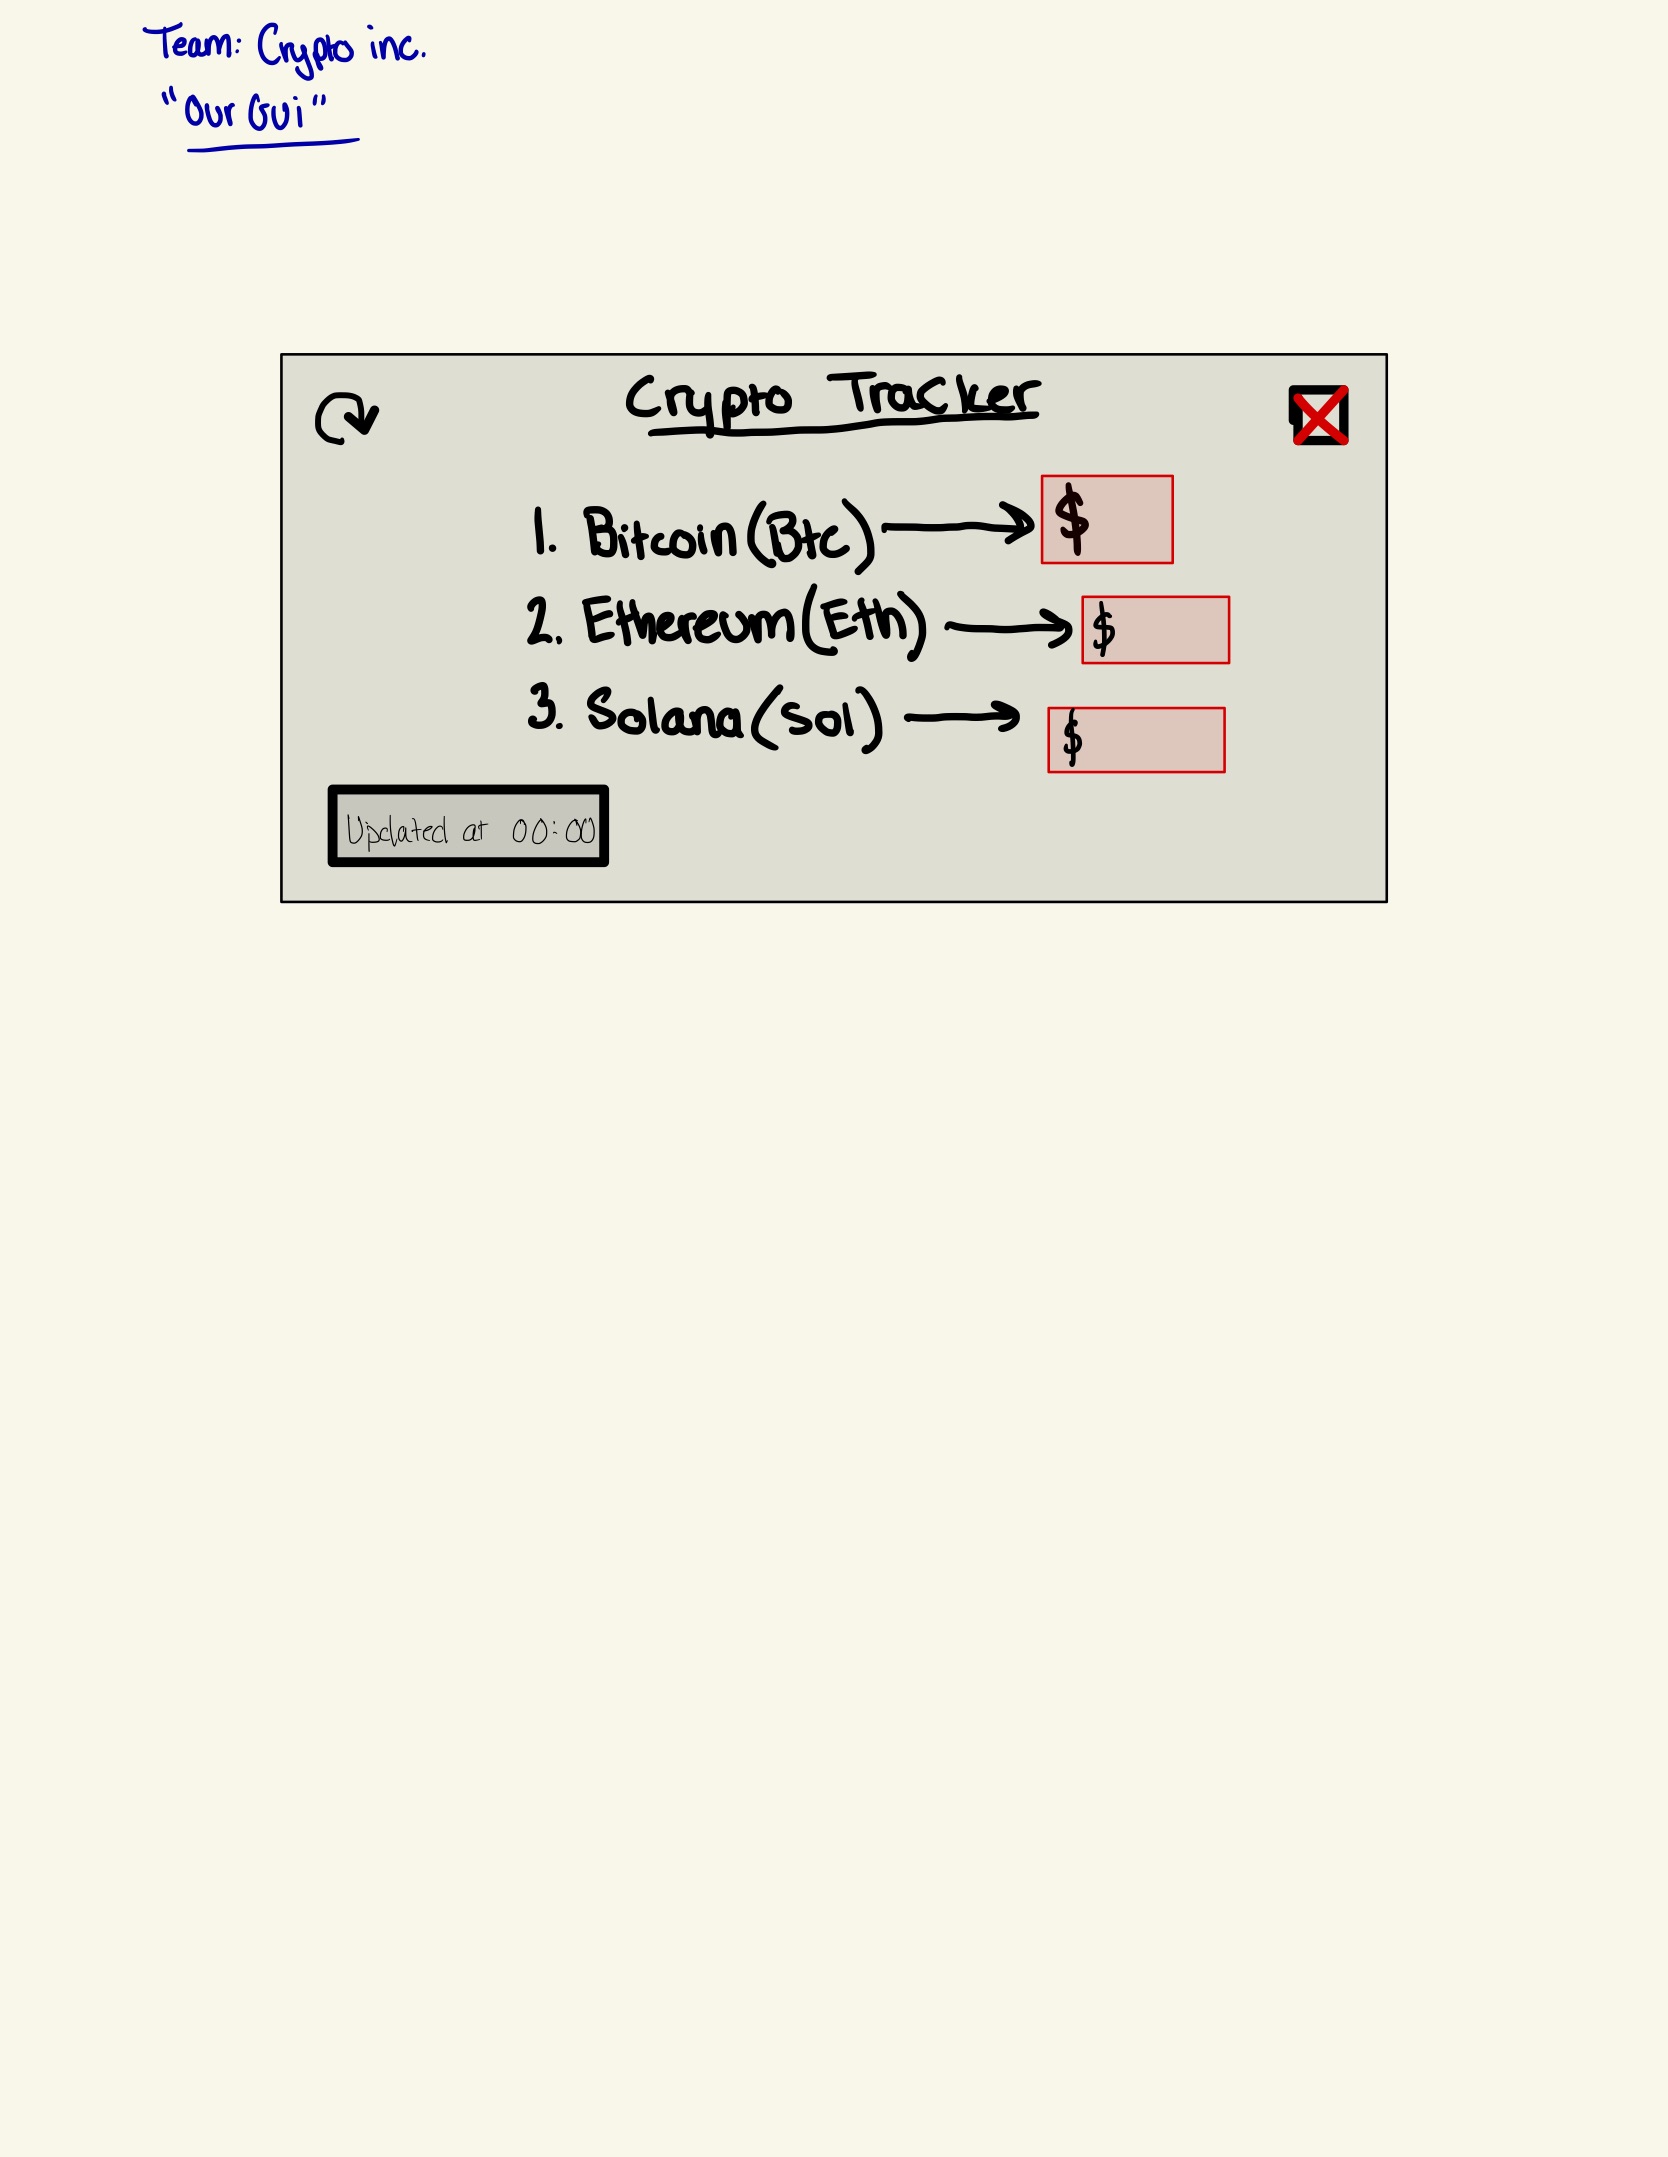 Team: Crypto inc.
"Our Gui"
Crypto Tracker
1. Bitcoin (Btc) $
2. Ethereum (Eth) $
3. Solana (Sol) $
Updated at 00:00